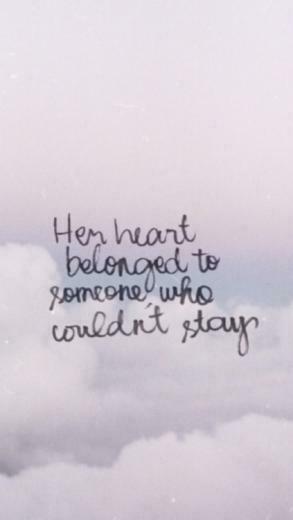 Her heart
belonged to
someone, who
couldn't stay